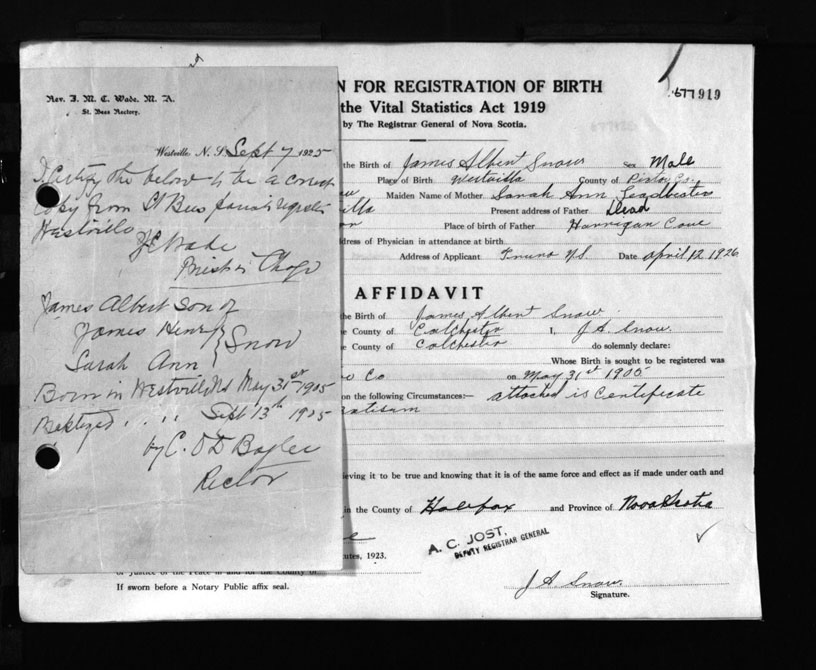 Rev. J. M. C. Wade, M. A.
St. Bees Rectory.
Westville, N. S. Sept 7 1925
I certify the below to be a correct
copy from St Bees parish register
Westville
Wade
Priest in Chge
James Albert son of
James Henry } Snow
Sarah Ann
Born in Westville NS May 31st 1905
Baptized . . . . Sept 13th 1905
by C. D
Rector
N FOR REGISTRATION OF BIRTH
the Vital Statistics Act 1919
by The Registrar General of Nova Scotia.
677919
the Birth of James Albert Snow Sex Male
Place of Birth Westville County of Pictou Co.
Maiden Name of Mother Sarah Ann
Present address of Father Dead
Place of birth of Father Harrigan Cove
ddress of Physician in attendance at birth
Address of Applicant Truro N.S. Date April 12 1926
AFFIDAVIT
the Birth of James Albert Snow
e County of Colchester I, J. A. Snow.
e County of Colchester do solemnly declare:
Whose Birth is sought to be registered was
Co on May 31st 1905
on the following Circumstances:— attached is Certificate
ieving it to be true and knowing that it is of the same force and effect as if made under oath and
in the County of Halifax and Province of Nova Scotia
A. C. JOST,
DEPUTY REGISTRAR GENERAL
tutes, 1923.
or Justice of the Peace in and for the County of
If sworn before a Notary Public affix seal.
J A Snow.
Signature.